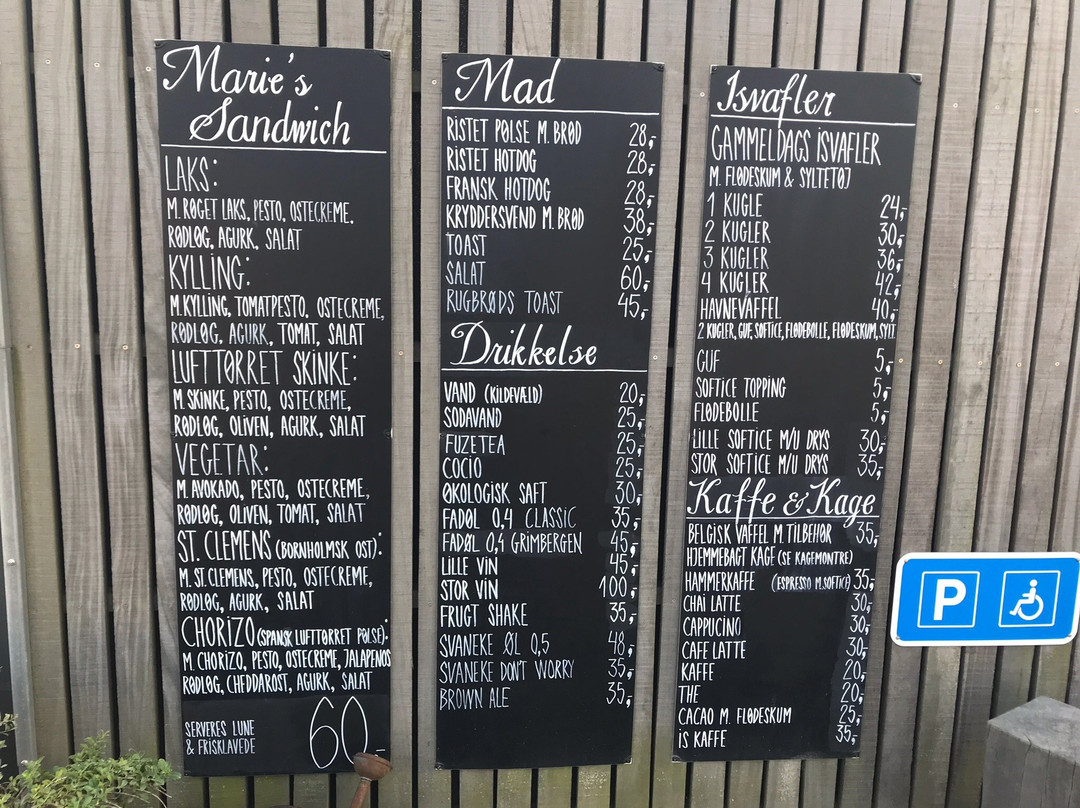 Marie's
Sandwich
LAKS:
M. RØGET LAKS, PESTO, OSTECREME,
RØDLØG, AGURK, SALAT
KYLLING:
M. KYLLING, TOMATPESTO, OSTECREME,
RØDLØG, AGURK, TOMAT, SALAT
LUFTTØRRET SKINKE:
M. SKINKE, PESTO, OSTECREME,
RØDLØG, OLIVEN, AGURK, SALAT
VEGETAR:
M. AVOKADO, PESTO, OSTECREME,
RØDLØG, OLIVEN, TOMAT, SALAT
ST. CLEMENS (BORNHOLMSK OST):
M. ST. CLEMENS, PESTO, OSTECREME,
RØDLØG, AGURK, SALAT
CHORIZO (SPANSK LUFTTØRRET PØLSE):
M. CHORIZO, PESTO, OSTECREME, JALAPENOS
RØDLØG, CHEDDAROST, AGURK, SALAT
SERVERES LUNE
& FRISKLAVEDE 60,-
Mad
RISTET PØLSE M. BRØD 28,-
RISTET HOTDOG 28,-
FRANSK HOTDOG 28,-
KRYDDERSVEND M. BRØD 38,-
TOAST 25,-
SALAT 60,-
RUGBRØDS TOAST 45,-
Drikkelse
VAND (KILDEVÆLD) 20,-
SODAVAND 25,-
FUZETEA 25,-
COCIO 25,-
ØKOLOGISK SAFT 30,-
FADØL 0,4 CLASSIC 35,-
FADØL 0,4 GRIMBERGEN 45,-
LILLE VIN 45,-
STOR VIN 100,-
FRUGT SHAKE 35,-
SVANEKE ØL 0,5 48,-
SVANEKE DON'T WORRY 35,-
BROWN ALE 35,-
Isvafler
GAMMELDAGS ISVAFLER
M. FLØDESKUM & SYLTETØJ
1 KUGLE 24,-
2 KUGLER 30,-
3 KUGLER 36,-
4 KUGLER 42,-
HAVNEVAFFEL 40,-
2 KUGLER, GUF, SOFTICE, FLØDEBOLLE, FLØDESKUM, SYLT.
GUF 5,-
SOFTICE TOPPING 5,-
FLØDEBOLLE 5,-
LILLE SOFTICE M/U DRYS 30,-
STOR SOFTICE M/U DRYS 35,-
Kaffe & Kage
BELGISK VAFFEL M. TILBEHØR 35,-
HJEMMEBAGT KAGE (SE KAGEMONTRE)
HAMMERKAFFE (ESPRESSO M. SOFTICE) 35,-
CHAI LATTE 30,-
CAPPUCINO 30,-
CAFE LATTE 30,-
KAFFE 20,-
THE 20,-
CACAO M. FLØDESKUM 25,-
IS KAFFE 35,-
P